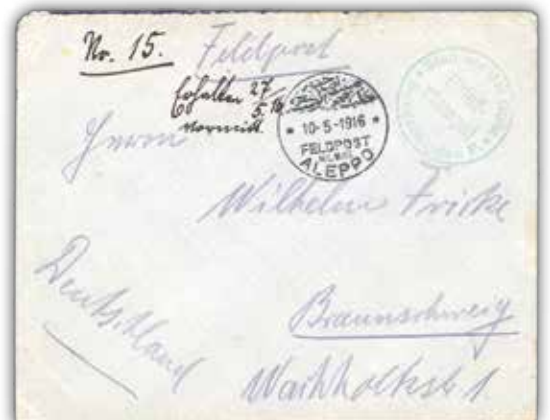 Nr. 15. Feldpost
Erhalten 27/5.16
vormitt.
* 10-5-1916 *
FELDPOST
MIL.MISS.
ALEPPO
Herrn
Wilhelm Fricke
Deutschland
Braunschweig